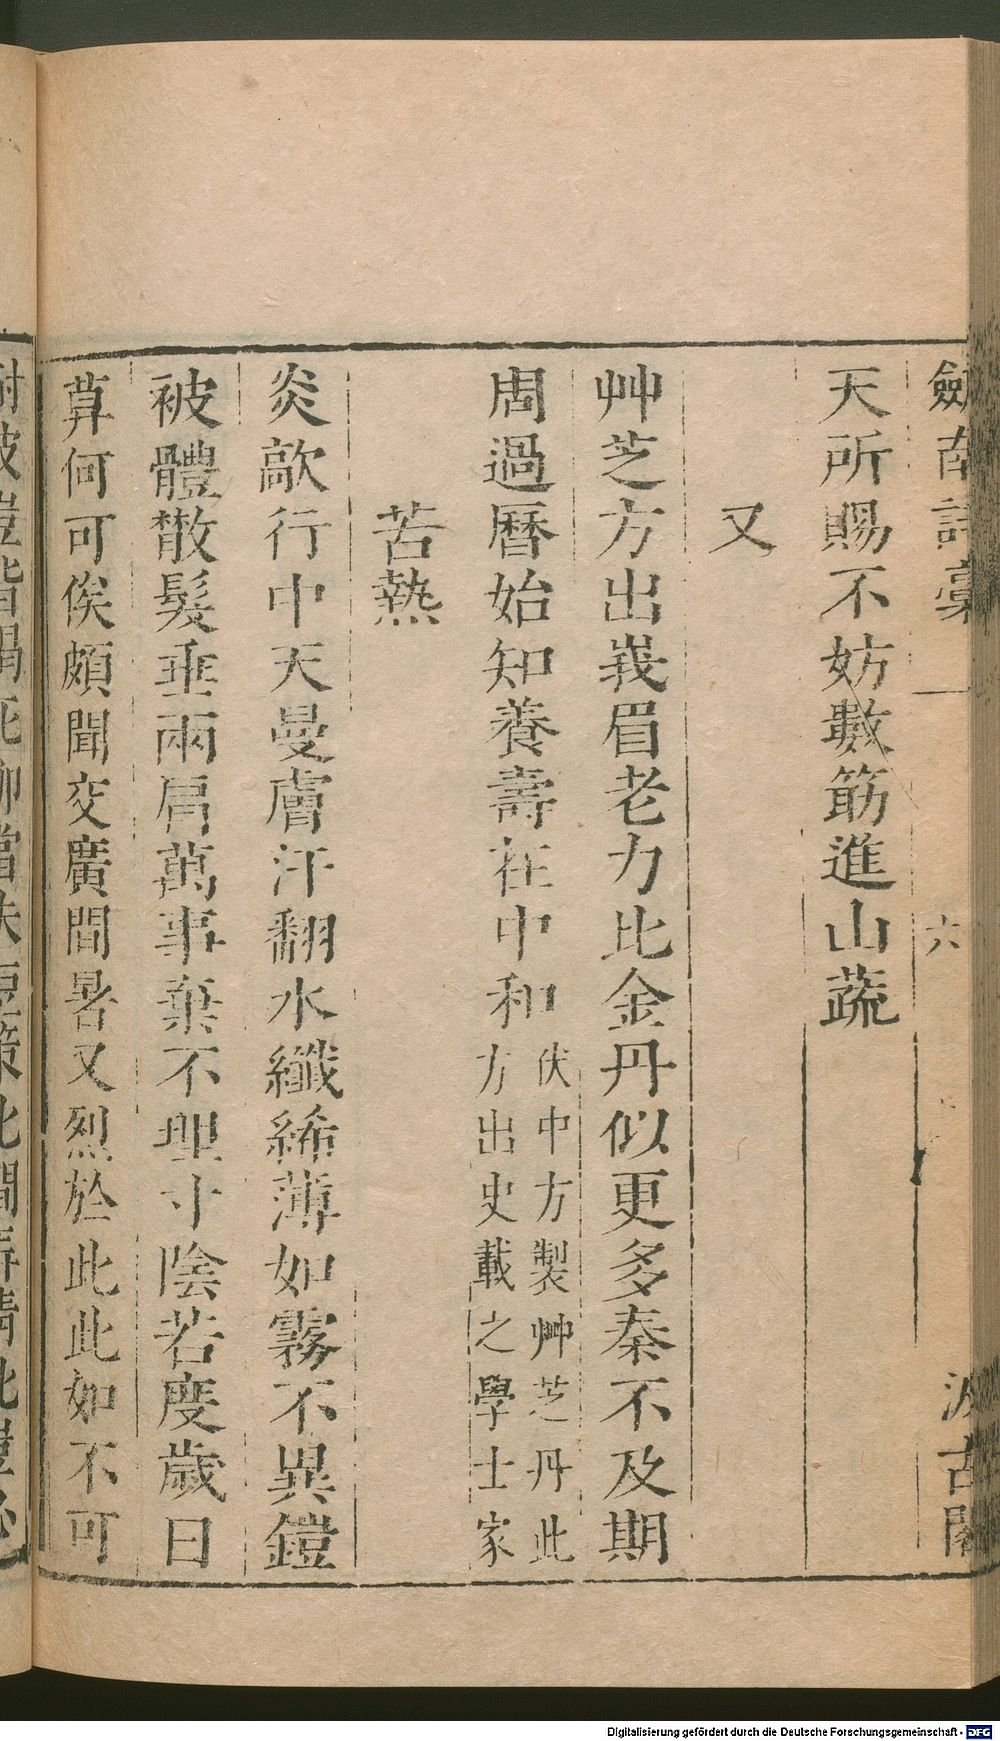 劍南詩藁 一 六 汲古閣
天所賜不妨數筯進山蔬
又
艸芝方出峩眉老力比金丹似更多秦不及期
周過曆始知養壽在中和伏中方製艸芝丹此
方出史載之學士家
苦熱
炎歊行中天曼膚汗翻水纖絺薄如霧不異鎧
被體散髮垂兩肩萬事棄不理寸陰若度歲日
莫何可俟頗聞交廣間暑又烈於此此如不可